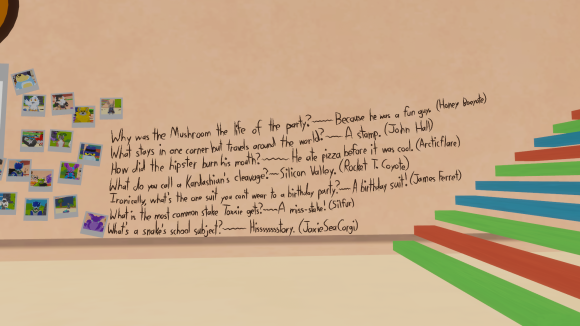 Why was the Mushroom the life of the party?~~~ Because he was a fun guy. (Honey Coyote)
What stays in one corner but travels around the world?~~~ A stamp. (John Hall)
How did the hipster burn his mouth?~~~ He ate pizza before it was cool. (Arcticflare)
What do you call a Kardashian's cleavage?~~ Silicon Valley. (Rocket T. Coyote)
Ironically, what's the one suit you cant wear to a birthday party?~~ A birthday suit! (James Ferret)
What is the most common stake Joxie gets?~~ A miss-stake! (Silfur)
What's a snake's school subject?~~~ Hissssssstory. (JoxieSeaCorgi)